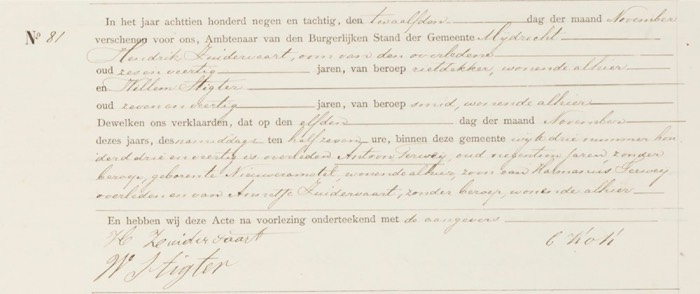 In het jaar achttien honderd negen en tachtig, den twaalfden dag der maand November
No 81
verschenen voor ons, Ambtenaar van den Burgerlijken Stand der Gemeente Mijdrecht
Hendrik Zuidervaart, oom van den overledene
oud zeven veertig jaren, van beroep rietdekker, wonende alhier
en Willem Stigter
oud zeven en veertig jaren, van beroep smid, wonende alhier
Dewelken ons verklaarden, dat op den elfden dag der maand November
dezes jaars, des namiddags ten half zeven ure, binnen deze gemeente wijk drie nummer hon
derd drie en veertig is overleden Antoon Terweij, oud negentien jaren, zonder
beroep, geboren te Nieuweramstel, wonende alhier, zoon van Hermanus Terweij
overleden en van Annetje Zuidervaart, zonder beroep, wonende alhier
En hebben wij deze Acte na voorlezing onderteekend met de aangevers
H Zuidervaart
C Kok
W Stigter